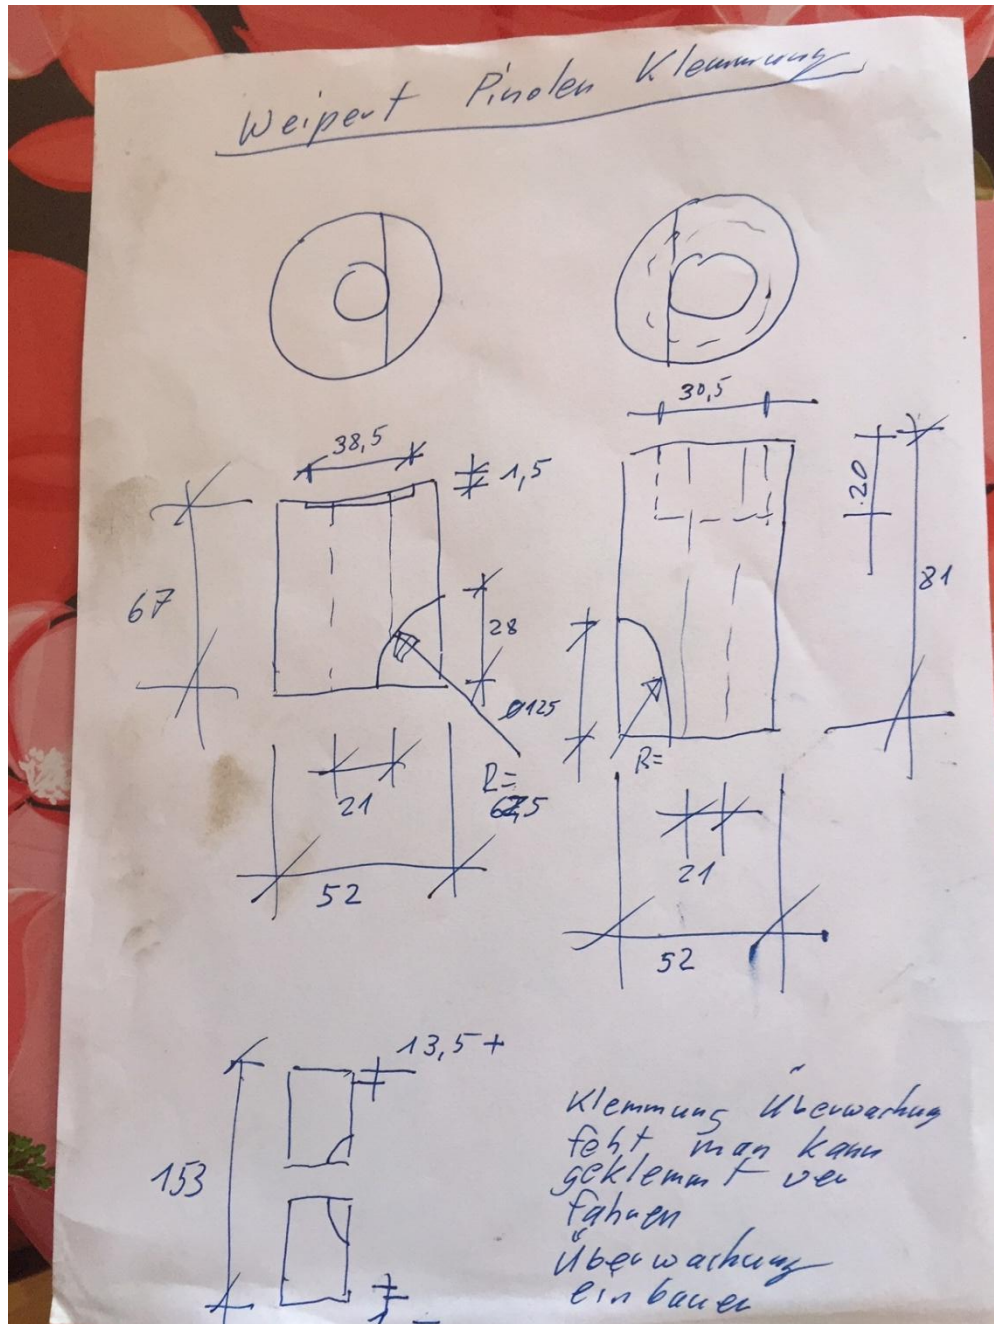 Weipert Pinolen Klemmung
30,5
38,5
1,5
20
67
28
81
ø125
R=
R=
21
21
52
52
13,5 +
153
Klemmung Überwachung
feht man kann
geklemmt ver
fahren
Überwachung
einbauen